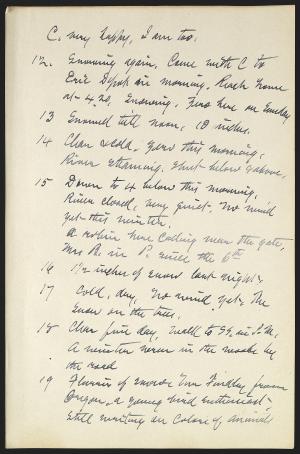 C. very happy, I am too.
12. Snowing again. Came with C to
Erie Depot in morning. Reach home
at 4.20, Snowing. Zero here on Sunday
13 Snowed till noon, 10 inches.
14 Clear & cold. Zero this morning,
River steaming. Shut below &above.
15 Down to 4 below this morning,
River closed, very quiet. No wind
yet this winter.
A robin here calling near the gate,
Mrs B. in P. since the 6th
16 1½ inches of snow last night.
17 Cold, day, No wind yet. The
snow on the trees.
18 Clear fine day, walk to in P.M.
A winter wren in the woods by
the road
19 Flurries of snow. Findley from
Oregon, a young bird enthusiast.
Still writing on Colors of Animals